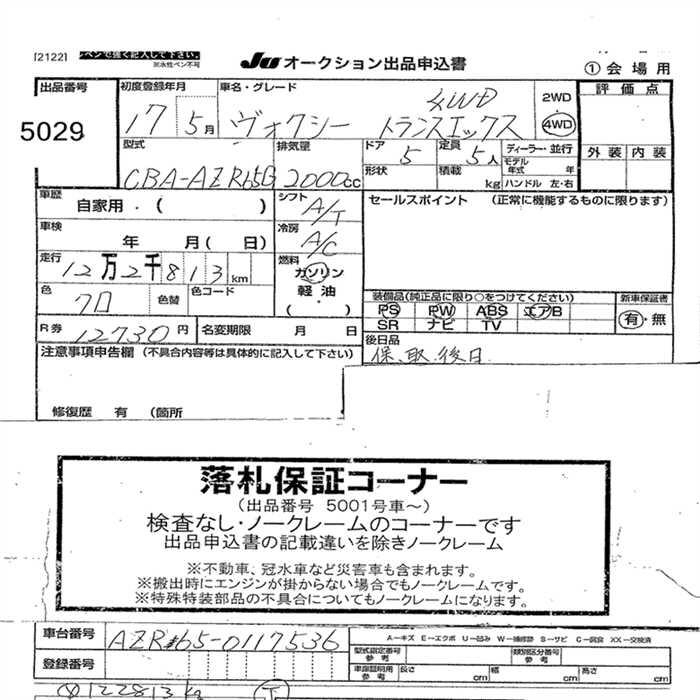 [2122] ペンで強く記入して下さい。
※水性ペン不可
JU オークション出品申込書
①会場用
出品番号 初度登録年月 車名・グレード 評価点
5029 17 5月 ヴォクシー 4WD トランスエックス 2WD 4WD
型式 排気量 ドア 定員 ディーラー・並行 外装 内装
CBA-AZR65G 2000cc 5 5人 モデル年式 年
形状 積載 kg ハンドル 左・右
車歴 シフト セールスポイント (正常に機能するものに限ります)
自家用・( ) A/T
車検 冷房
年 月( 日) A/C
走行 燃料
12万2千813km ガソリン
軽油
色 色替 色コード ・( )
クロ
装備品(純正品に限り○をつけてください) 新車保証書
PS PW ABS エアB 有・無
SR ナビ TV
R券 12730円 名変期限 月 日
後日品
保、取、後日
注意事項申告欄 (不具合内容等は具体的に記入して下さい)
修復歴 有 (箇所
落札保証コーナー
(出品番号 5001号車～)
検査なし・ノークレームのコーナーです
出品申込書の記載違いを除きノークレーム
※不動車、冠水車など災害車も含まれます。
※搬出時にエンジンが掛からない場合でもノークレームです。
※特殊特装部品の不具合についてもノークレームになります。
車台番号 AZR65-0117536
A－キズ E－エクボ U－凹み W－補修跡 S－サビ C－腐食 XX－交換済
登録番号
型式指定番号 参考 類別区分番号 参考
車庫証明用 参考 長さ cm 幅 cm 高さ cm
122813k